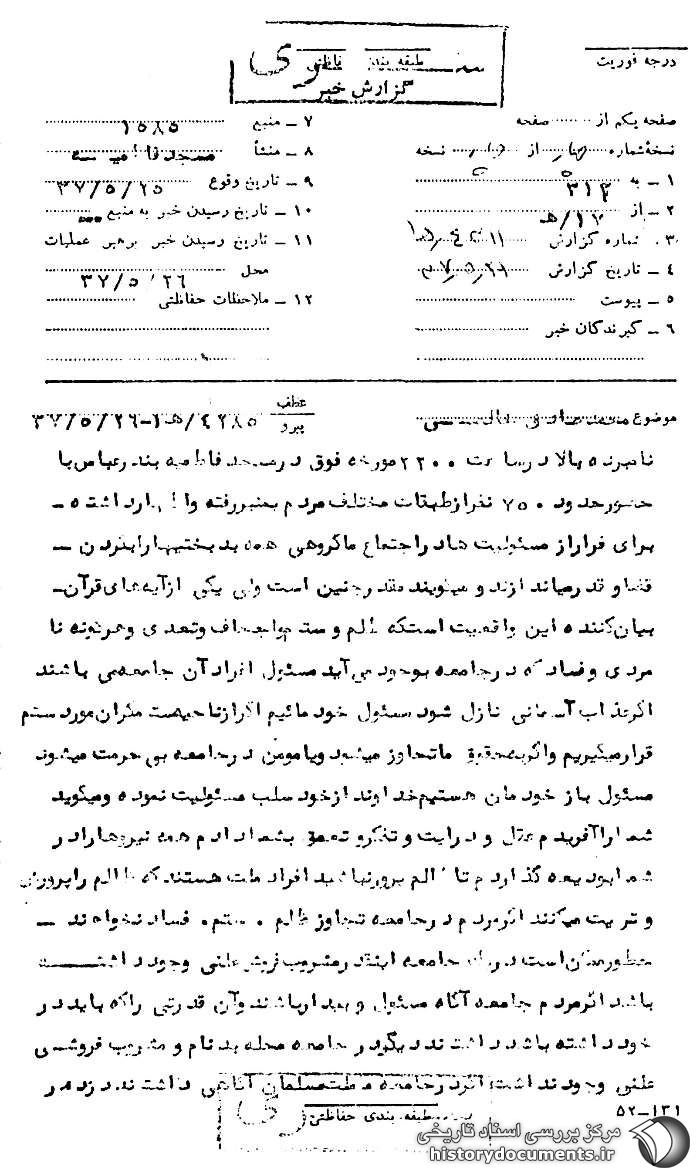 درجه فوریت
طبقه بندی حفاظتی سری
گزارش خبر
صفحه یکم از ........ صفحه
نسخهٔ شماره چهار از ........ نسخه
۱ ـ به ۳۱۲
۲ ـ از ۱۷/ﻫ
۳. شماره گزارش
۴ ـ تاریخ گزارش
۵ ـ پیوست
۶ ـ گیرندگان خبر
۷ ـ منبع ۱۵۸۵
۸ ـ منشأ مسجد فاطمیه
۹ ـ تاریخ وقوع ۳۷/۵/۲۵
۱۰ ـ تاریخ رسیدن خبر به منبع
۱۱ ـ تاریخ رسیدن خبر برهبر عملیات
محل ۳۷/۵/۲۶
۱۲ ـ ملاحظات حفاظتی
موضوع محمد صادق
عطف
پیرو ۳۷/۵/۲۶
نامبرده بالا در ساعت ۲۲۰۰ مورخه فوق در مسجد فاطمیه بندرعباس با
حضور حدود ۷۵۰ نفر از طبقات مختلف مردم بمنبر رفته و اظهار داشته ـ
برای فرار از مسئولیت ها در اجتماع ما گروهی همه بدبختیها را بگردن ـ
قضا و قدر میاندازند و میگویند مقدر چنین است ولی یکی از آیه های قرآن ـ
بیان کننده این واقعیت است که ظلم و ستم و اجحاف و تعدی و هرگونه نا
مردی و فساد که در جامعه بوجود می آید مسئول افراد آن جامعه می باشند
اگر عذاب آسمانی نازل شود مسئول خود مائیم اگر از ناحیه ستمگران مورد ستم
قرار میگیریم و اگر بحقوق ما تجاوز میشود و یا مومن در جامعه بی حرمت میشود
مسئول باز خودمان هستیم خداوند از خود سلب مسئولیت نموده و میگوید
شما را آفریدم عقل و درایت و تفکر و تعمق بشما دادم همه نیروها را در
شما بودیعه گذاردم تا ظالم پرور نباشید افراد ملت هستند که ظالم را پرورش
و تربیت میکنند اگر مردم در جامعه تجاوز ظلم . ستم. فساد نخواهند ـ
چطور ممکن است در یک جامعه اینقدر مشروب فروش علنی وجود داشته
باشد اگر مردم جامعه آگاه مسئول و بیدار باشند و آن قدرتی را که باید در
خود داشته باشد داشتند دیگر در جامعه محله بدنام و مشروب فروشی
علنی وجود نداشت اگر در جامعه ملت مسلمان آگاهی داشتند دزد در
طبقه بندی حفاظتی
۵۲ـ۱۳۱
مرکز بررسی اسناد تاریخی
historydocuments.ir